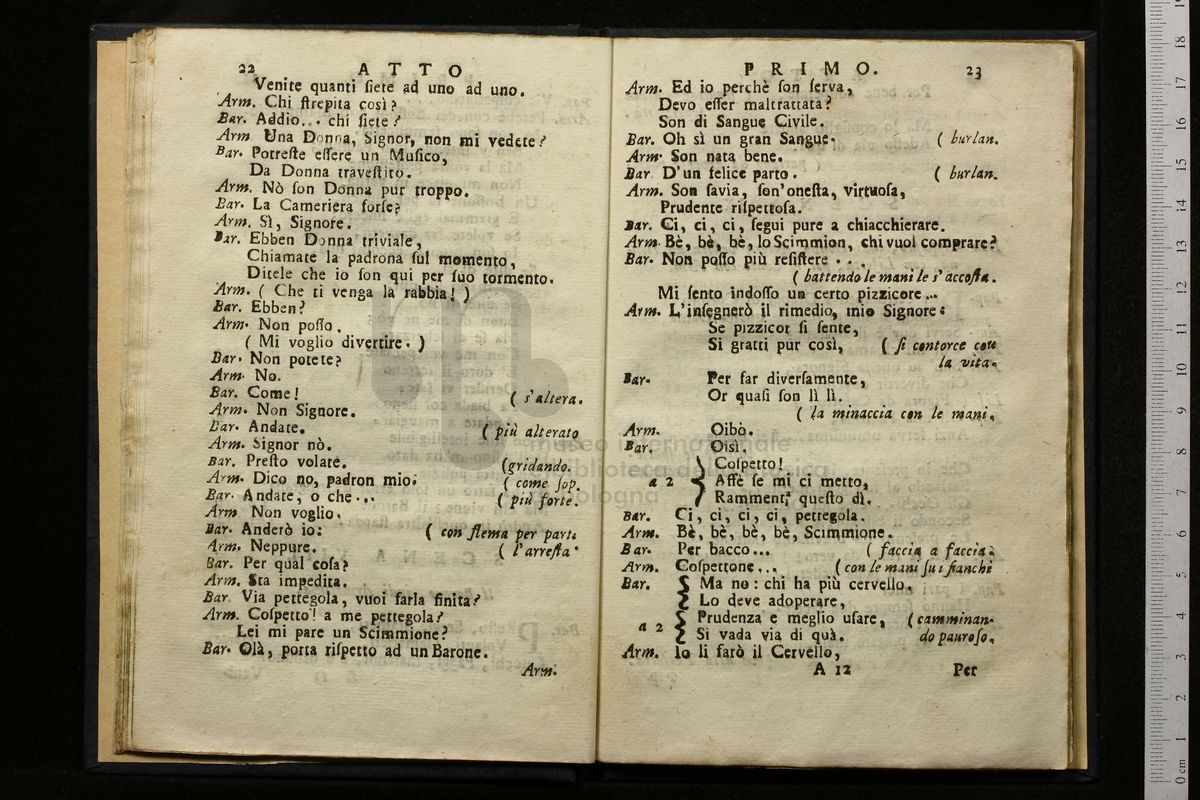 22 ATTO
Venite quanti ſiete ad uno ad uno.
Arm. Chi ſtrepita così?
Bar. Addio... chi ſiete?
Arm Una Donna, Signor, non mi vedete?
Bar. Potreſte eſſere un Muſico,
Da Donna traveſtito.
Arm. Nò ſon Donna pur troppo.
Bar. La Cameriera forſe?
Arm. Sì, Signore.
Bar. Ebben Donna triviale,
Chiamate la padrona ſul momento,
Ditele che io ſon qui per ſuo tormento.
Arm. ( Che ti venga la rabbia! )
Bar. Ebben?
Arm. Non poſſo.
( Mi voglio divertire. )
Bar. Non potete?
Arm. No.
Bar. Come! ( s'altera.
Arm. Non Signore.
Bar. Andate. ( più alterato
Arm. Signor nò.
Bar. Preſto volate. (gridando.
Arm. Dico no, padron mio: ( come ſop.
Bar. Andate, o che... ( più forte.
Arm. Non voglio.
Bar. Anderò io: ( con flema per parti
Arm. Neppure. ( l'arreſta.
Bar. Per qual coſa?
Arm. Sta impedita.
Bar. Via pettegola, vuoi farla finita?
Arm. Coſpetto! a me pettegola?
Lei mi pare un Scimmione?
Bar. Olà, porta riſpetto ad un Barone.
Arm.
PRIMO. 23
Arm. Ed io perchè ſon ſerva,
Devo eſſer maltrattata?
Son di Sangue Civile.
Bar. Oh sì un gran Sangue. ( burlan.
Arm. Son nata bene.
Bar D'un felice parto. ( burlan.
Arm. Son ſavia, ſon'oneſta, virtuoſa,
Prudente riſpettoſa.
Bar. Ci, ci, ci, ſegui pure a chiacchierare.
Arm. Bè, bè, bè, lo Scimmion, chi vuol comprare?
Bar. Non poſſo più reſiſtere ...
( battendo le mani le s'accoſta.
Mi ſento indoſſo un certo pizzicore...
Arm. L'inſegnerò il rimedio, mio Signore:
Se pizzicor ſi ſente,
Si gratti pur così, ( ſi contorce con
la vita.
Bar. Per far diverſamente,
Or quaſi ſon lì lì.
( la minaccia con le mani.
Arm. Oibò.
Bar. Oisì.
Coſpetto!
a 2 Affè ſe mi ci metto,
Ramment; queſto dì.
Bar. Ci, ci, ci, ci, pettegola.
Arm. Bè, bè, bè, bè, Scimmione.
Bar. Per bacco... ( faccia a faccia.
Arm. Coſpettone... ( con le mani ſui fianchi
Bar. Ma no: chi ha più cervello,
Lo deve adoperare,
a 2 Prudenza e meglio uſare, ( camminan-
Si vada via di quà. do pauroſo.
Arm. Io li farò il Cervello,
A 12 Per
museo internazionale
biblioteca della musica
bologna